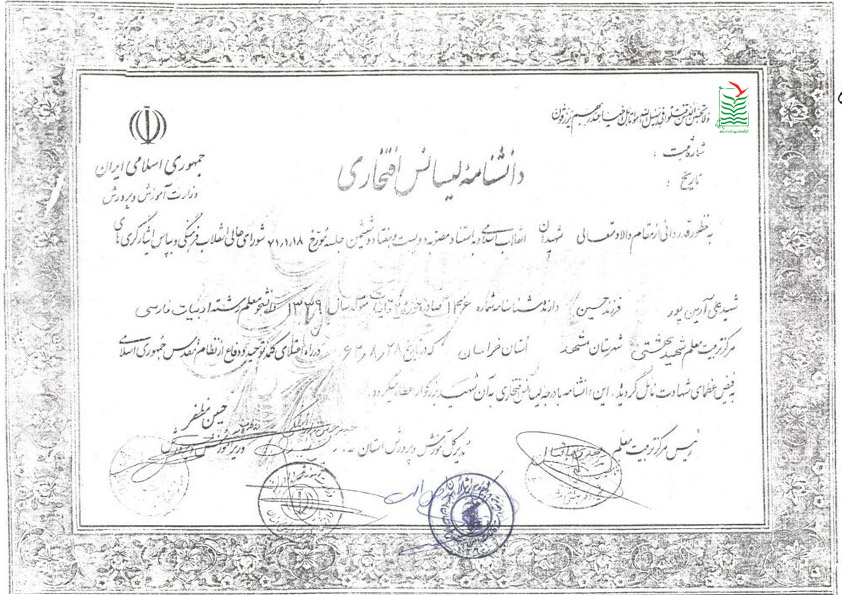 ولا تحسبن الذین قتلوا فی سبیل الله امواتا بل احیاء عند ربهم یرزقون
جمهوری اسلامی ایران
وزارت آموزش و پرورش
شماره ثبت :
تاریخ :
دانشنامه لیسانس افتخاری
به منظور قدردانی از مقام والا و متعالی شهیدان انقلاب اسلامی و به استناد مصوبه دویست و هفتاد و ششمین جلسه مورخ ۷۱،۱،۱۸ شورای عالی انقلاب فرهنگی و بپاس ایثارگری های
شهید علی آرمین پور فرزند حسین دارنده شناسنامه شماره ۱۴۶ صادره از متولد سال ۱۳۳۹ دانشجو معلم رشته ادبیات فارسی
مرکز تربیت معلم شهید بهشتی شهرستان مشهد استان خراسان که در تاریخ ۶۲،۸،۲۸ در راه اعتلای کلمه توحید و دفاع از نظام مقدس جمهوری اسلامی
به فیض عظمای شهادت نائل گردیده، این دانشنامه با درجه لیسانس افتخاری به آن شهید بزرگوار عطا میگردد.
رئیس مرکز تربیت معلم
مدیر کل آموزش و پرورش استان
حسین مظفر
وزیر آموزش و پرورش